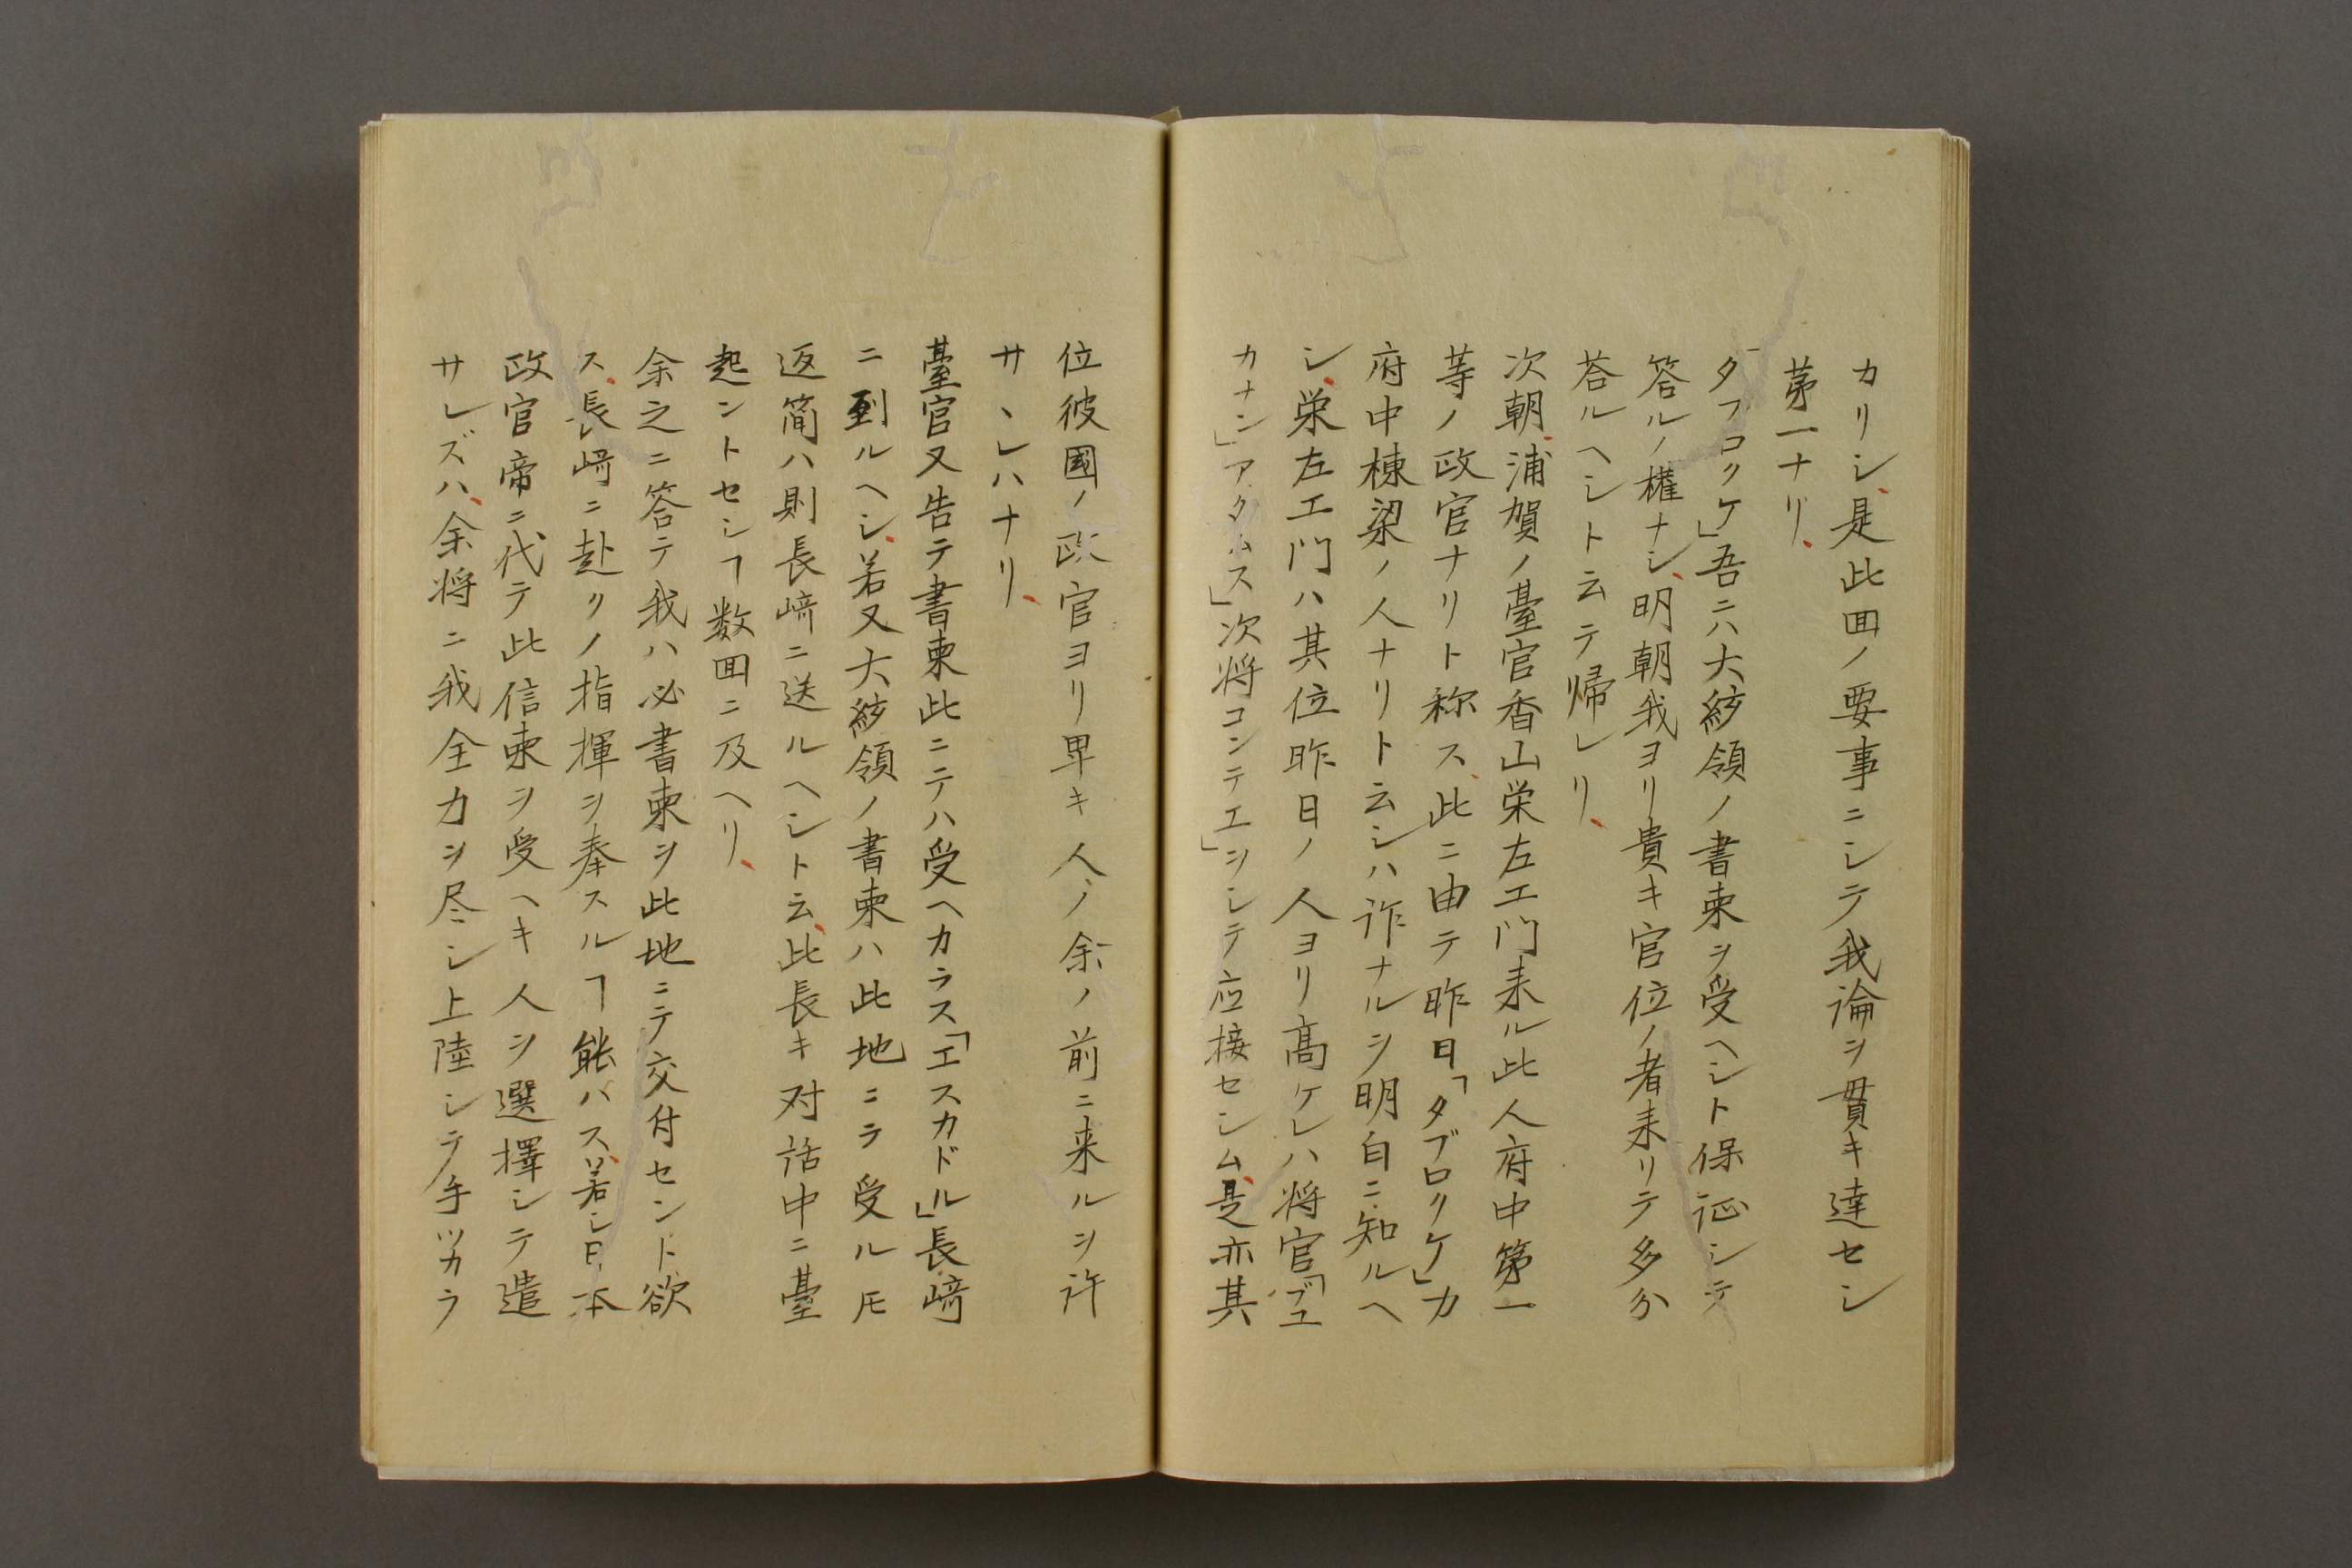 カリシ、是此回ノ要事ニシテ我論ヲ貫キ達セシ
第一ナリ、
「タフロリケ」吾ニハ大統領ノ書柬ヲ受ヘシト保証シテ
答ルノ権ナシ、明朝我ヨリ貴キ官位ノ者来リテ多分
答ルヘシト云テ帰レリ、
次朝、浦賀ノ臺官香山栄左エ門来ル此人府中第一
等ノ政官ナリト称ス、此ニ由テ昨日「タブロリケ」カ
府中棟梁ノ人ナリト云シハ詐ナルヿ明白ニ知ルヘ
シ、栄左エ門ハ其位昨日ノ人ヨリ高ケレハ将官「ブエ
カナン」アタムス」次将コンテエ」ヲシテ応接セシム、是亦其
位彼國ノ政官ヨリ卑キ人ノ余ノ前ニ来ルヲ許
サヽレハナリ、
臺官又告テ書柬此ニテハ受ヘカラス「エスカドル」長﨑
ニ到ルヘシ、若又大統領ノ書柬ハ此地ニテ受ル𪜈
返簡ハ則長﨑ニ送ルヘシト云、此長キ対話中ニ臺
起ントセシヿ数回ニ及ヘリ、
余之ニ答テ我ハ必書柬ヲ此地ニテ交付セント欲
ス、長﨑ニ赴リノ指揮ヲ奉スルヿ能ハス、若シ日本
政官帝ニ代テ此信柬ヲ受ヘキ人ヲ選擇シテ遣
サレズハ、余将ニ我全力ヲ尽シ上陸シテ手ツカラ